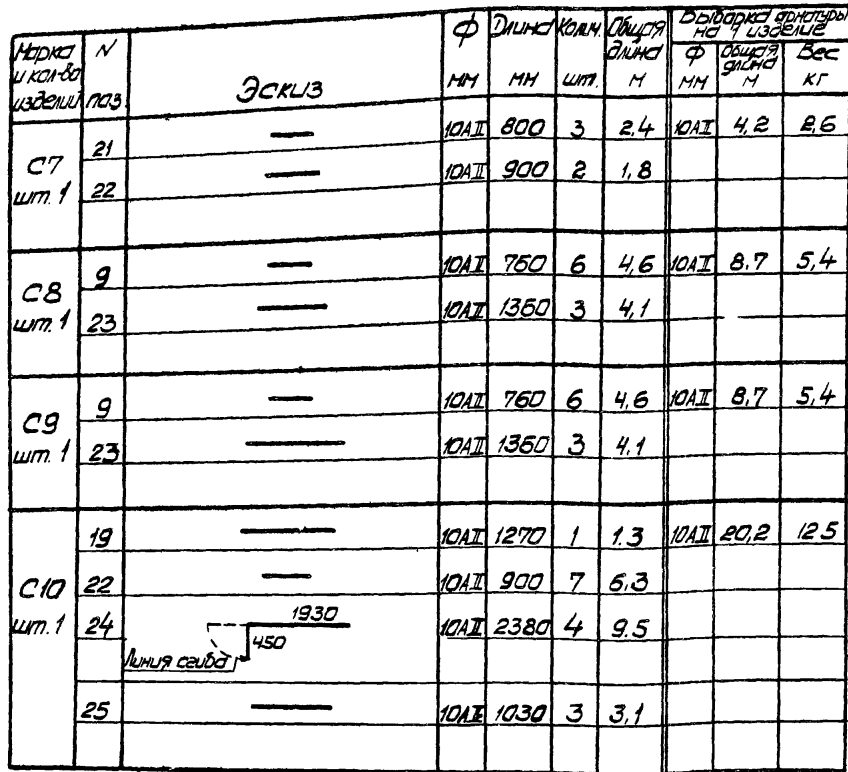 Марка и кол-во изделий N поз. Эскиз Ф мм Длина мм Колич. шт. Общая длина м Выборка арматуры на 1 изделие Ф мм общая длина м Вес кг
С7 шт. 1
21 10АII 800 3 2,4 10АII 4,2 2,6
22 10АII 900 2 1,8
С8 шт. 1
9 10АII 760 6 4,6 10АII 8,7 5,4
23 10АII 1360 3 4,1
С9 шт. 1
9 10АII 760 6 4,6 10АII 8,7 5,4
23 10АII 1360 3 4,1
С10 шт. 1
19 10АII 1270 1 1.3 10АII 20,2 12.5
22 10АII 900 7 6,3
24 1930 450 Линия сгиба 10АII 2380 4 9.5
25 10АII 1030 3 3,1